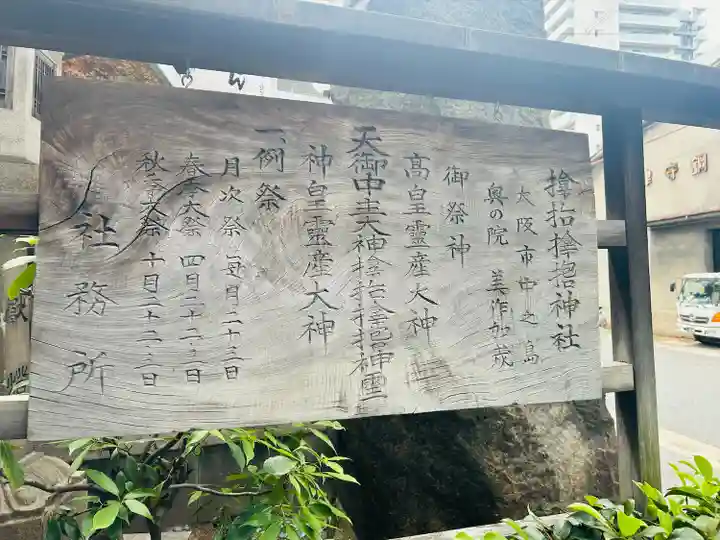 撿挹撿挹神社
大阪市中之島
奥の院 美作加茂
御祭神
高皇霊産大神
天御中主大神
神皇霊産大神
一、例祭
月次祭 毎月二十二日
春季大祭 四月二十二日
秋季大祭 十月二十二日
社務所